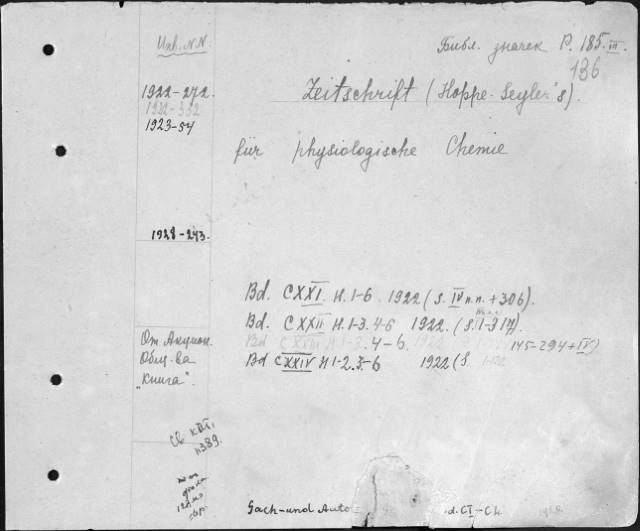 Инв. N.N.
Библ. значек P. 185. III.
136
1922-272.
1922-332
1923-54
Zeitschrift (Hoppe-Seyler's).
für physiologische Chemie
1928-243.
Bd. CXXI H. 1-6 1922 (S. IV n.n. + 306).
Bd. CXXII H. 1-3. 4-6 1922. (S. 1-317).
Bd CXXIII H 1-3. 4-6. 1922 145-294+IV)
Bd CXXIV H 1-2. 3-6 1922 (S.
От Акцион.
Общ-ва
„Книга".
Св
N389.
Sach-und Auto
d. CI-